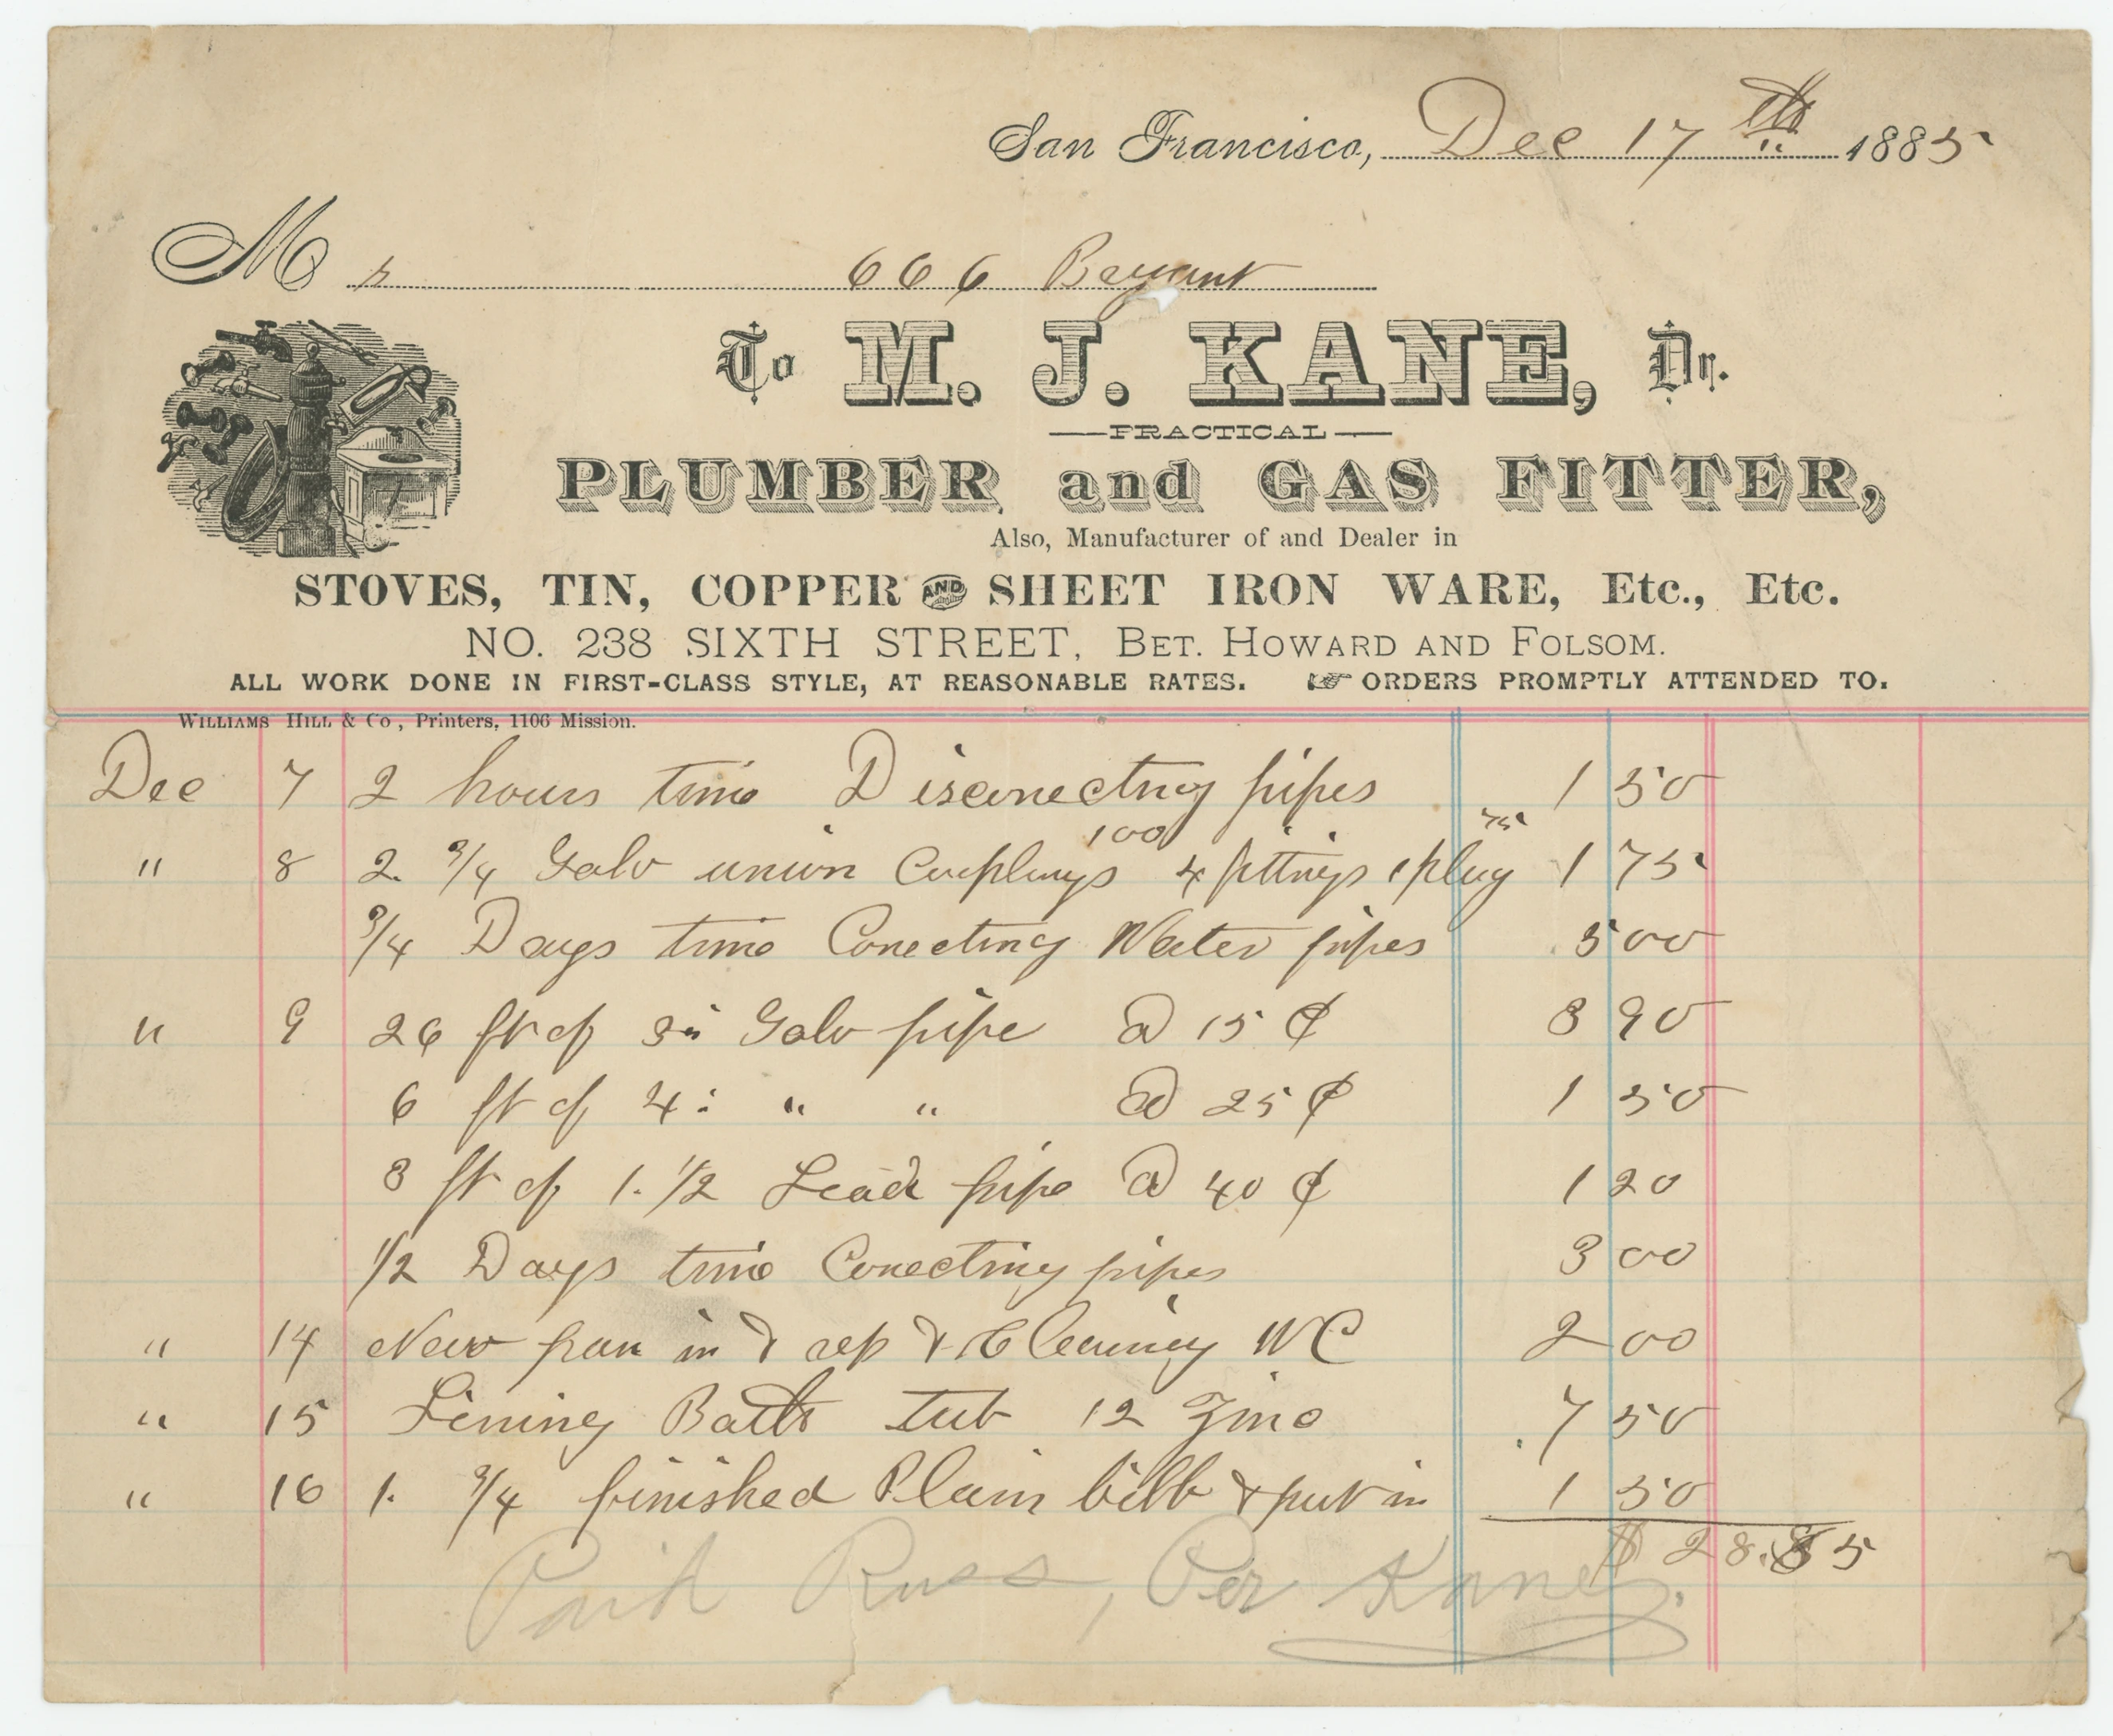 San Francisco, Dec 17th 1885
Mr 666 Bryant
To M. J. KANE, Dr.
PRACTICAL
PLUMBER and GAS FITTER,
Also, Manufacturer of and Dealer in
STOVES, TIN, COPPER AND SHEET IRON WARE, Etc., Etc.
NO. 238 SIXTH STREET, BET. HOWARD AND FOLSOM.
ALL WORK DONE IN FIRST-CLASS STYLE, AT REASONABLE RATES. ☞ ORDERS PROMPTLY ATTENDED TO.
WILLIAMS HILL & Co, Printers, 1106 Mission.
Dec 7 2 hours time Disconecting pipes 1 50
100 75
" 8 2. 3/4 Galv union Couplings 4 fittings 1 plug 1 75
3/4 Days time Conecting Water pipes 5 00
" 9 26 ft of 3in Galv pipe @ 15 ¢ 3 90
6 ft of 4: " " @ 25 ¢ 1 50
3 ft of 1. 1/2 Lead pipe @ 40 ¢ 1 20
1/2 Days time Conecting pipes 3 00
" 14 New pan in & rep & Cleaning WC 2 00
" 15 Lining Bath tub 12 Zinc 7 50
" 16 1. 3/4 finished Plain bibb & put in 1 50
$ 28.85
Paid Russ, Per Kane.